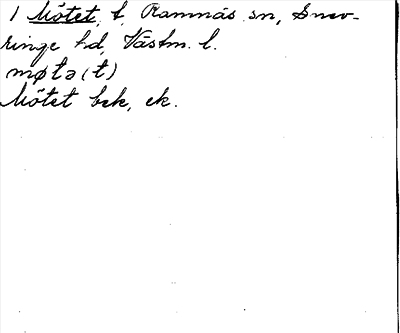 1 Mötet, t, Ramnäs sn, Snev-
ringe hd, Västm. l.
møtə(t)
Mötet bek, ek.